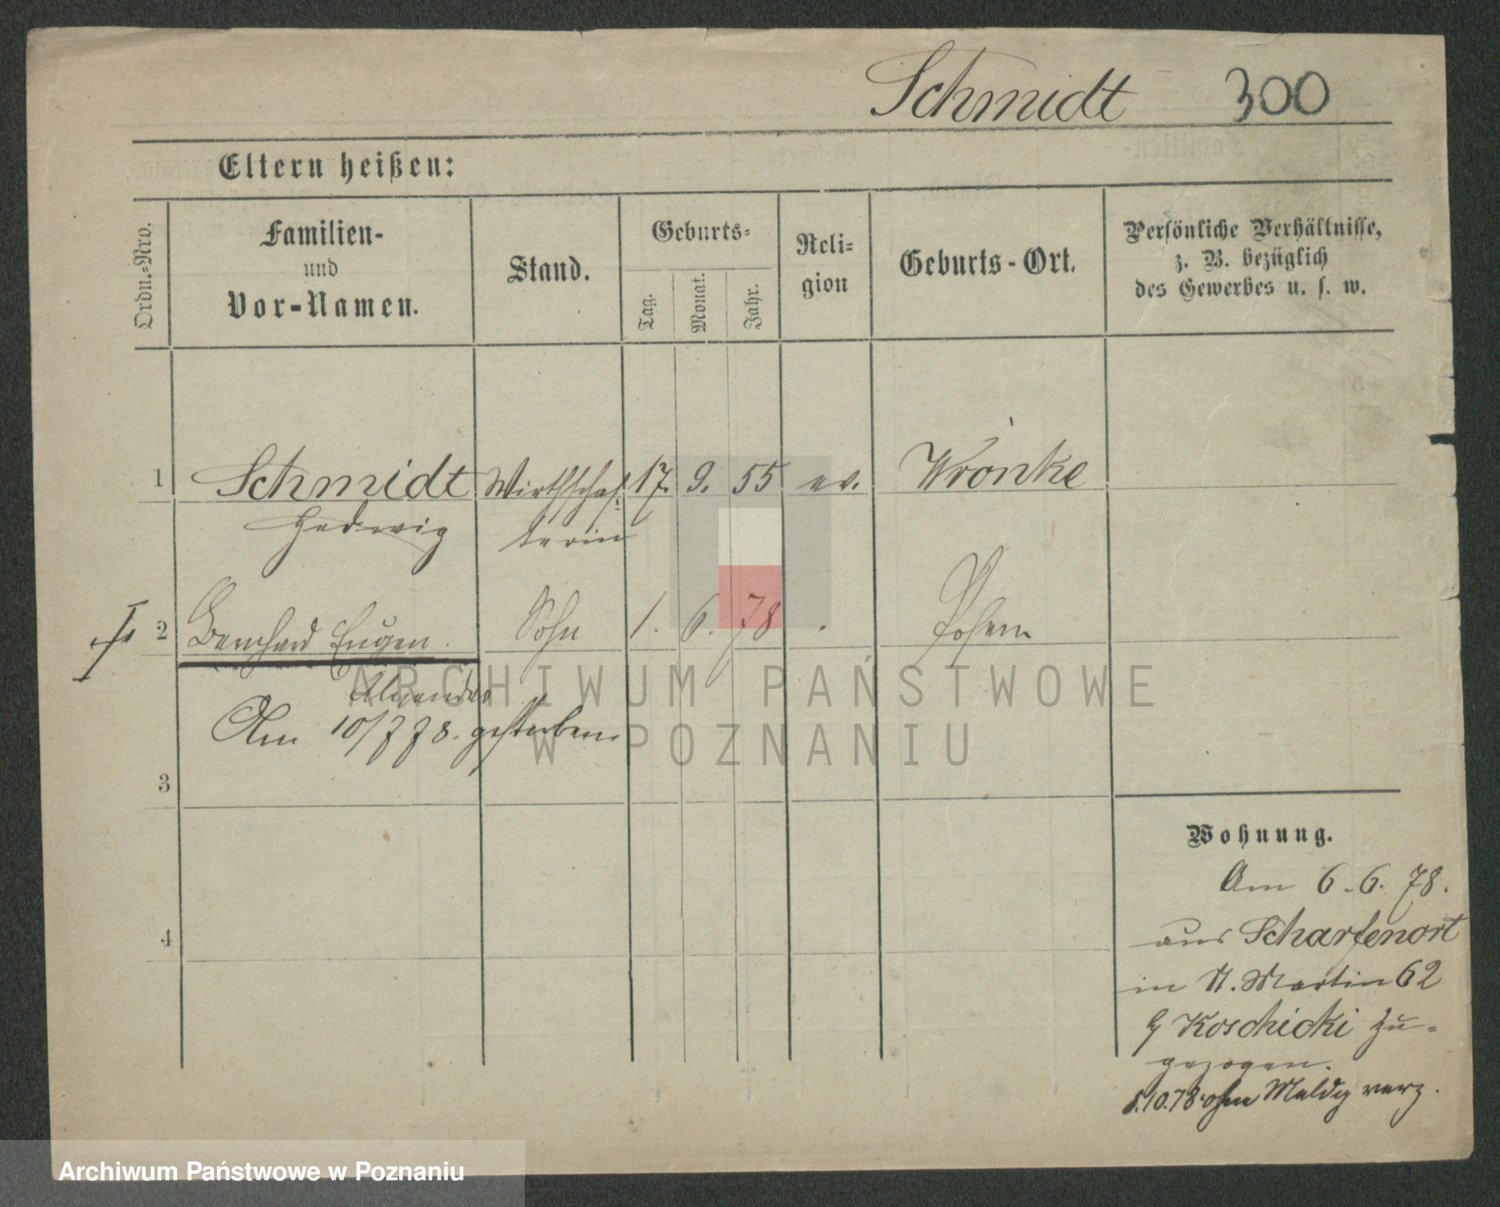 Schmidt 300
Eltern heißen:
Ordn.-Nro.
Familien-
und
Vor-Namen.
Stand.
Geburts-
Tag.
Monat.
Jahr.
Reli-
gion
Geburts-Ort.
Persönliche Verhältnisse,
z. B. bezüglich
des Gewerbes u. s. w.
1 Schmidt Wirthschaf- 17. 9. 55 ev. Wronke
Hedwig terin
2 Bernhard Eugen Sohn 1. 6. 78 Posen
Am 10/7 78. gestorben
3
4
Wohnung.
Am 6.6.78.
aus Scharfenort
in St. Martin 62
Koschicki zu-
gezogen.
10.78 ohne Meldg verz.
ARCHIWUM PAŃSTWOWE
W POZNANIU
Archiwum Państwowe w Poznaniu